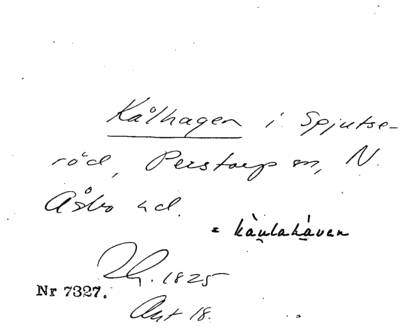 Kålhagen i Spjutse-
röd, Perstorp sn, N.
Åsbo hd.
= kàulahàven
1825
Nr 7327.
Akt 18.